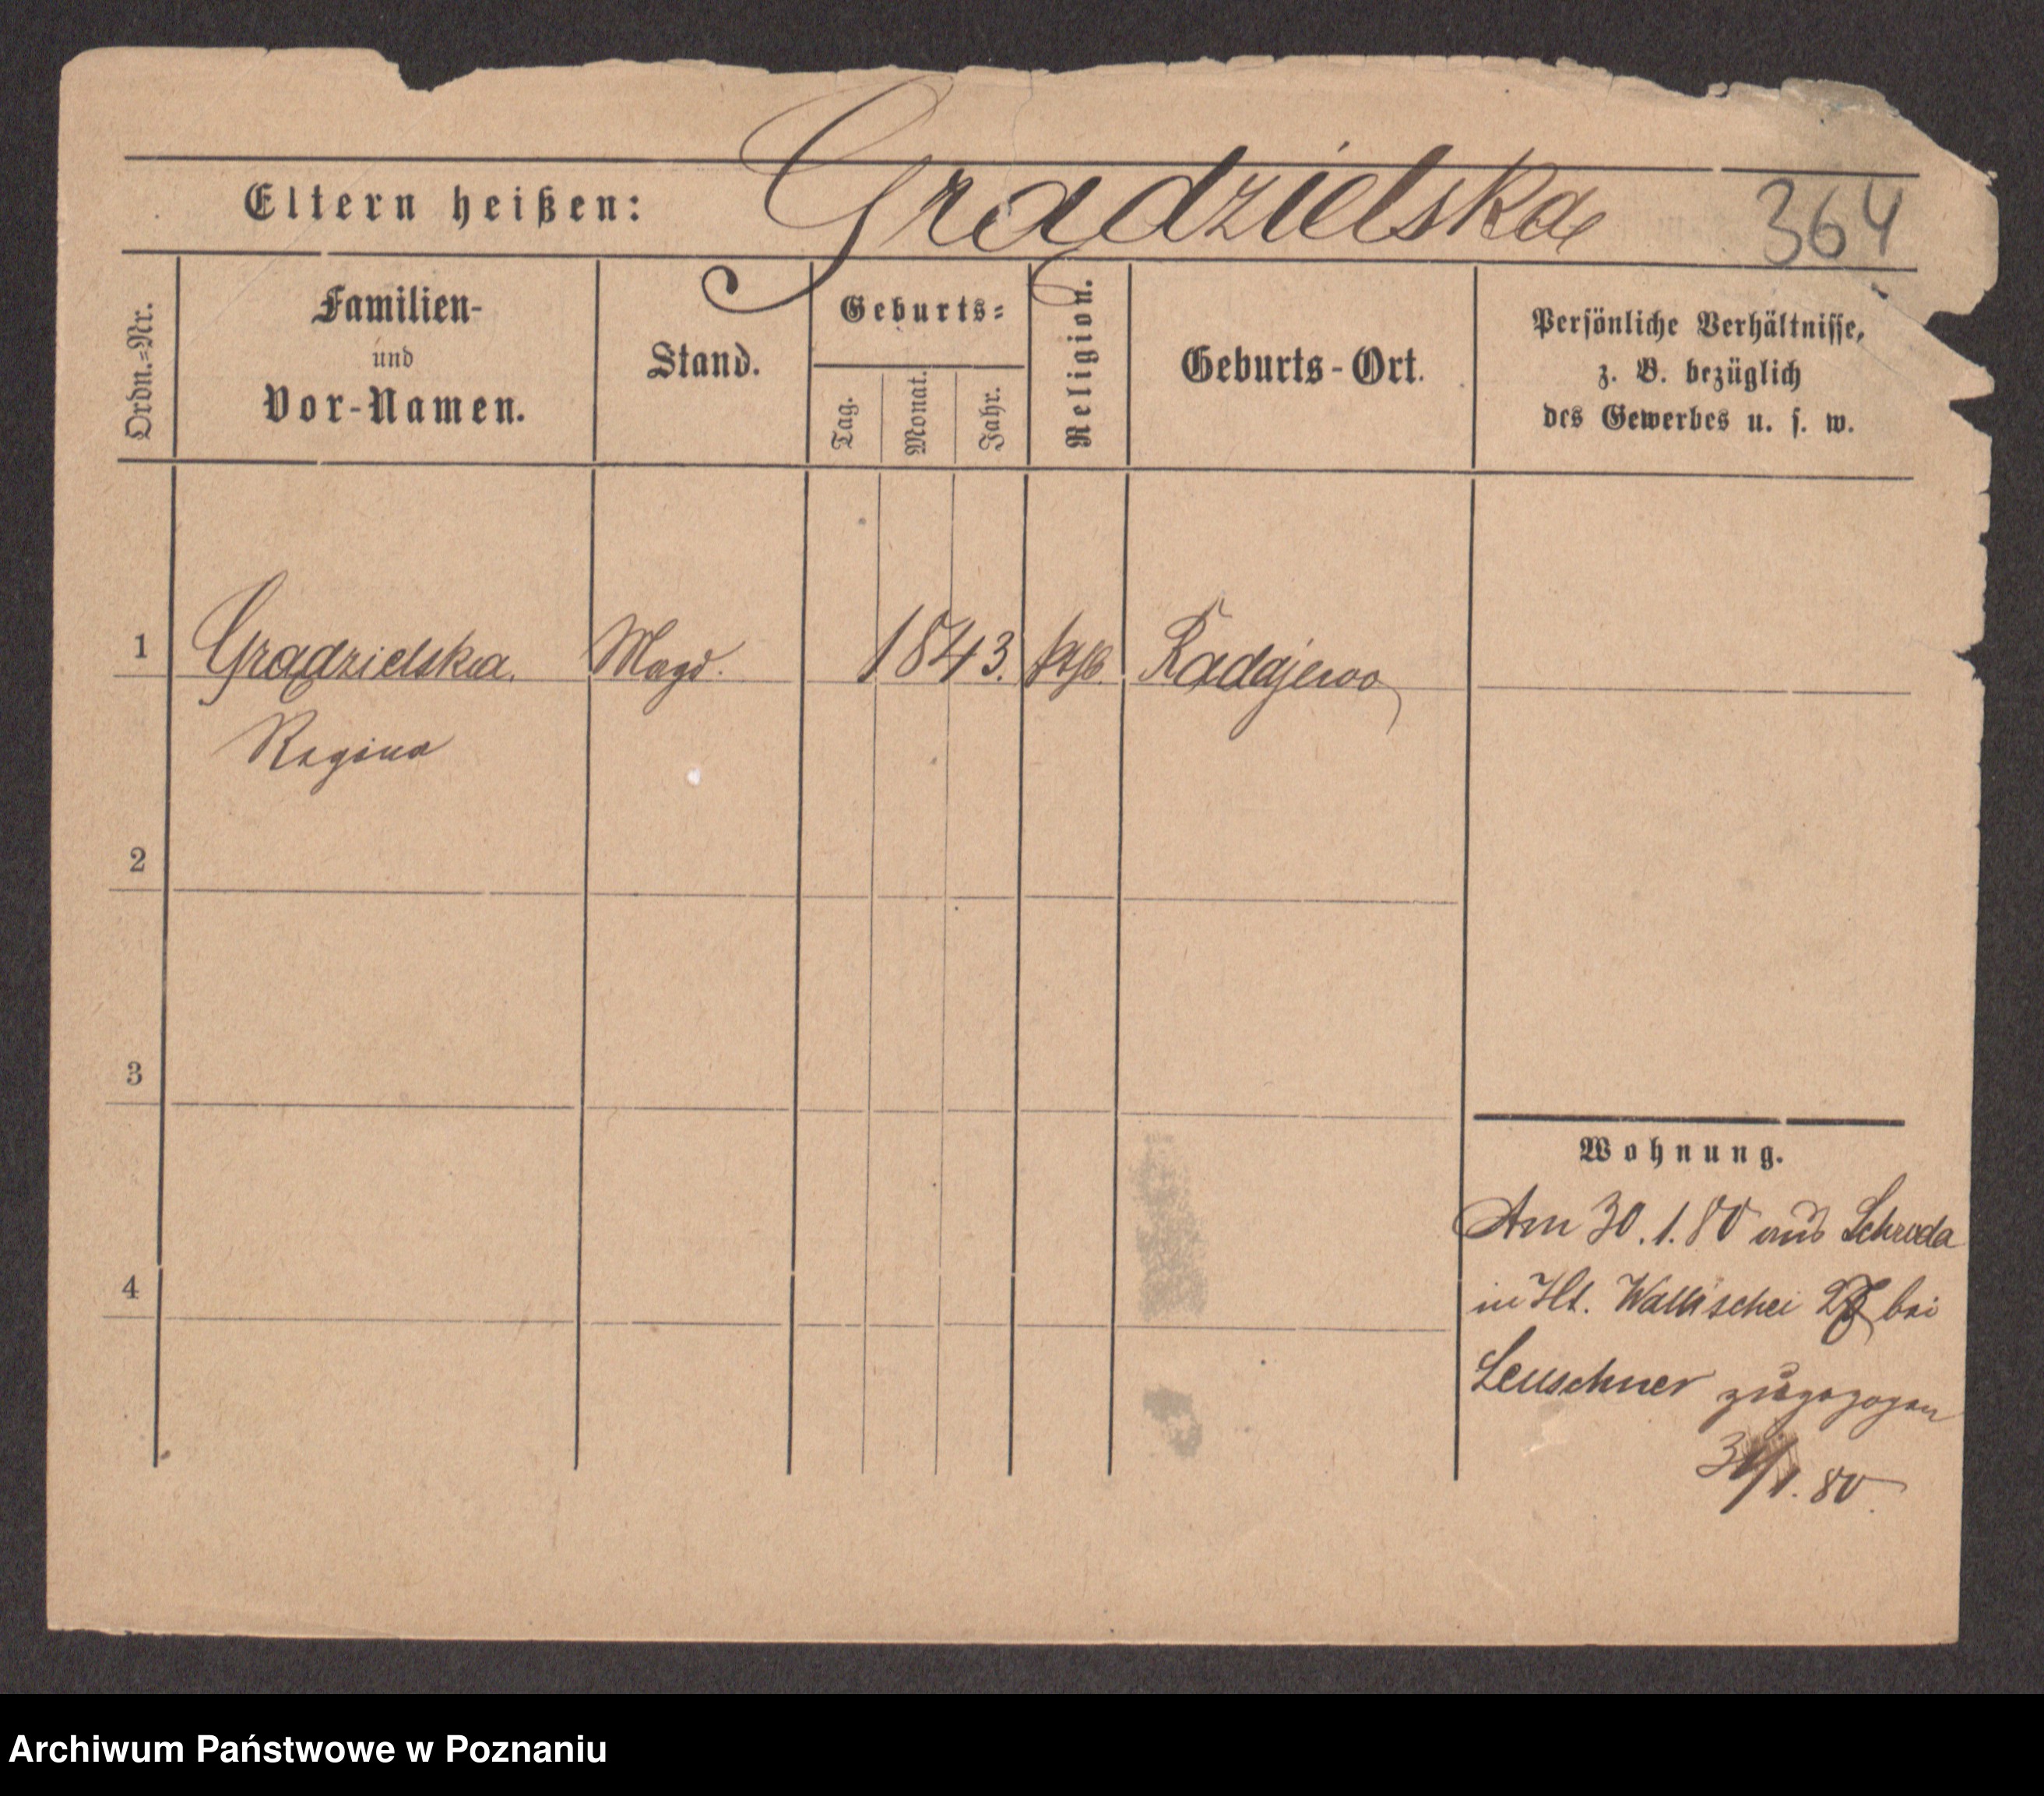 Eltern heißen: Grądzielska 364
Ordn.=Nr.
Familien-
und
Vor-Namen.
Stand.
Geburts=
Tag.
Monat.
Jahr.
Religion.
Geburts-Ort.
Persönliche Verhältnisse,
z. B. bezüglich
des Gewerbes u. s. w.
1 Grądzielska. Magd. 1843. kath. Radajewo
Regina
2
3
4
Wohnung.
Am 30.1.80 aus Schroda
in Hl. Wallischei bei
Leuschner zugezogen
31/1.80.
Archiwum Państwowe w Poznaniu